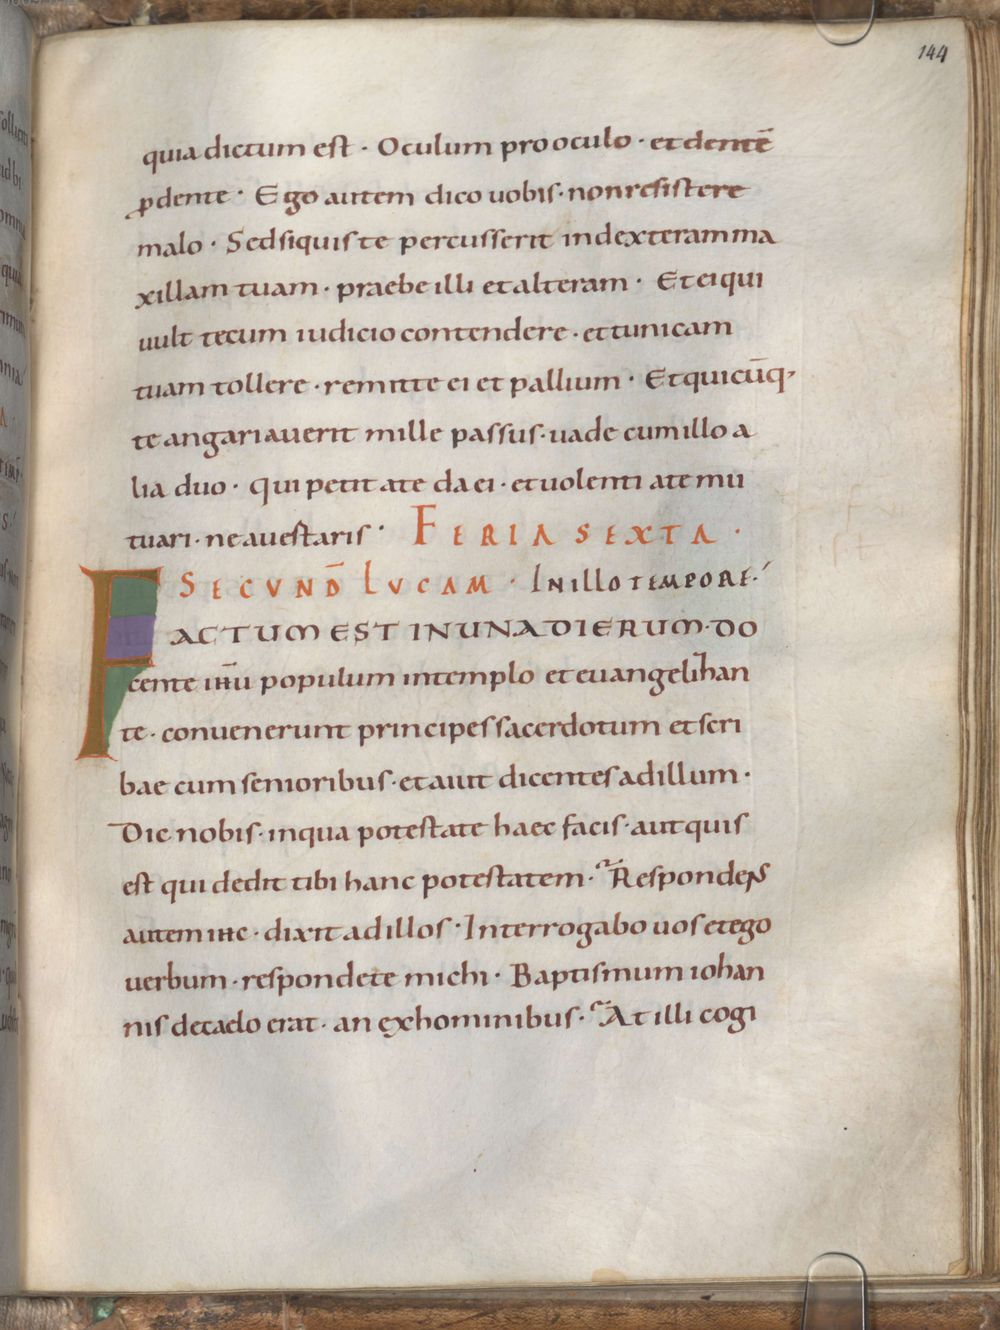 144
quia dictum est · Oculum pro oculo · et dentē
ꝓ dente · Ego autem dico uobis · non resistere
malo · Sed siquis te percusserit in dexteram ma
xillam tuam · praebe illi et alteram · Et ei qui
uult tecum iudicio contendere · et tunicam
tuam tollere · remitte ei et pallium · Et quicūq·
te angariauerit mille passus · uade cum illo a
lia duo · qui petit a te da ei · et uolenti a te mu
tuari · ne auestaris · FERIA SEXTA ·
SECUND̄ LUCAM · IN ILLO TEMPORE ·
FACTUM EST IN UNA DIERUM · DO
cente ihū populum in templo et euangelihan
te · conuenerunt principes sacerdotum et scri
bae cum senioribus · et aiut dicentes ad illum ·
Dic nobis · in qua potestate haec facis · aut quis
est qui dedit tibi hanc potestatem · Respondens
autem ihc · dixit ad illos · Interrogabo uos et ego
uerbum · respondete michi · Baptismum iohan
nis de caelo erat · an ex hominibus · At illi cogi